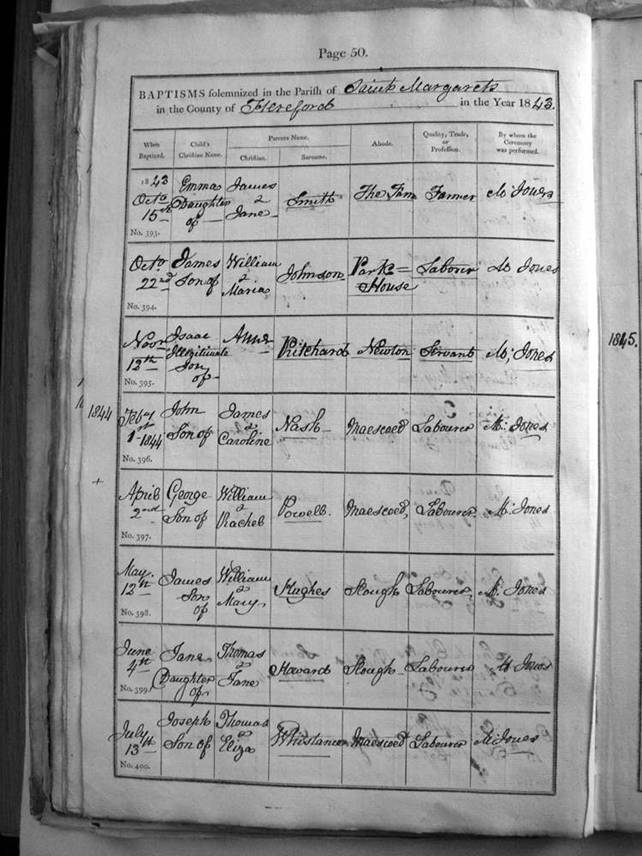 Page 50.
BAPTISMS solemnized in the Parish of Saint Margarets
in the County of Hereford in the Year 1843.
When Baptized. Child's Christian Name. Parents Name. Christian. Surname. Abode. Quality, Trade, or Profession. By whom the Ceremony was performed.
1843 Octo 15th Emma Daughter of James & Jane Smith The Farm Farmer M: Jones
No. 393.
Octo 22nd James Son of William & Maria Johnson Park House Labourer M Jones
No. 394.
12th Isaac Illegitimate Son of Anne Pritchard Newton Servant M; Jones
No. 395.
1844 Feby 1st 1844 John Son of James & Caroline Nash Maescoed Labourer M: Jones
No. 396.
April 2nd George Son of William & Rachel Powell Maescoed, Labourer M: Jones
No. 397.
May. 12th James Son of William & Mary, Hughes Slough Labourer, M: Jones
No. 398.
June 4th Jane Daughter of Thomas & Jane Howard Slough Labourer M Jones
No. 399.
July 13th Joseph Son of Thomas & Eliza Maescoed Labourer M: Jones
No. 400.
1845.